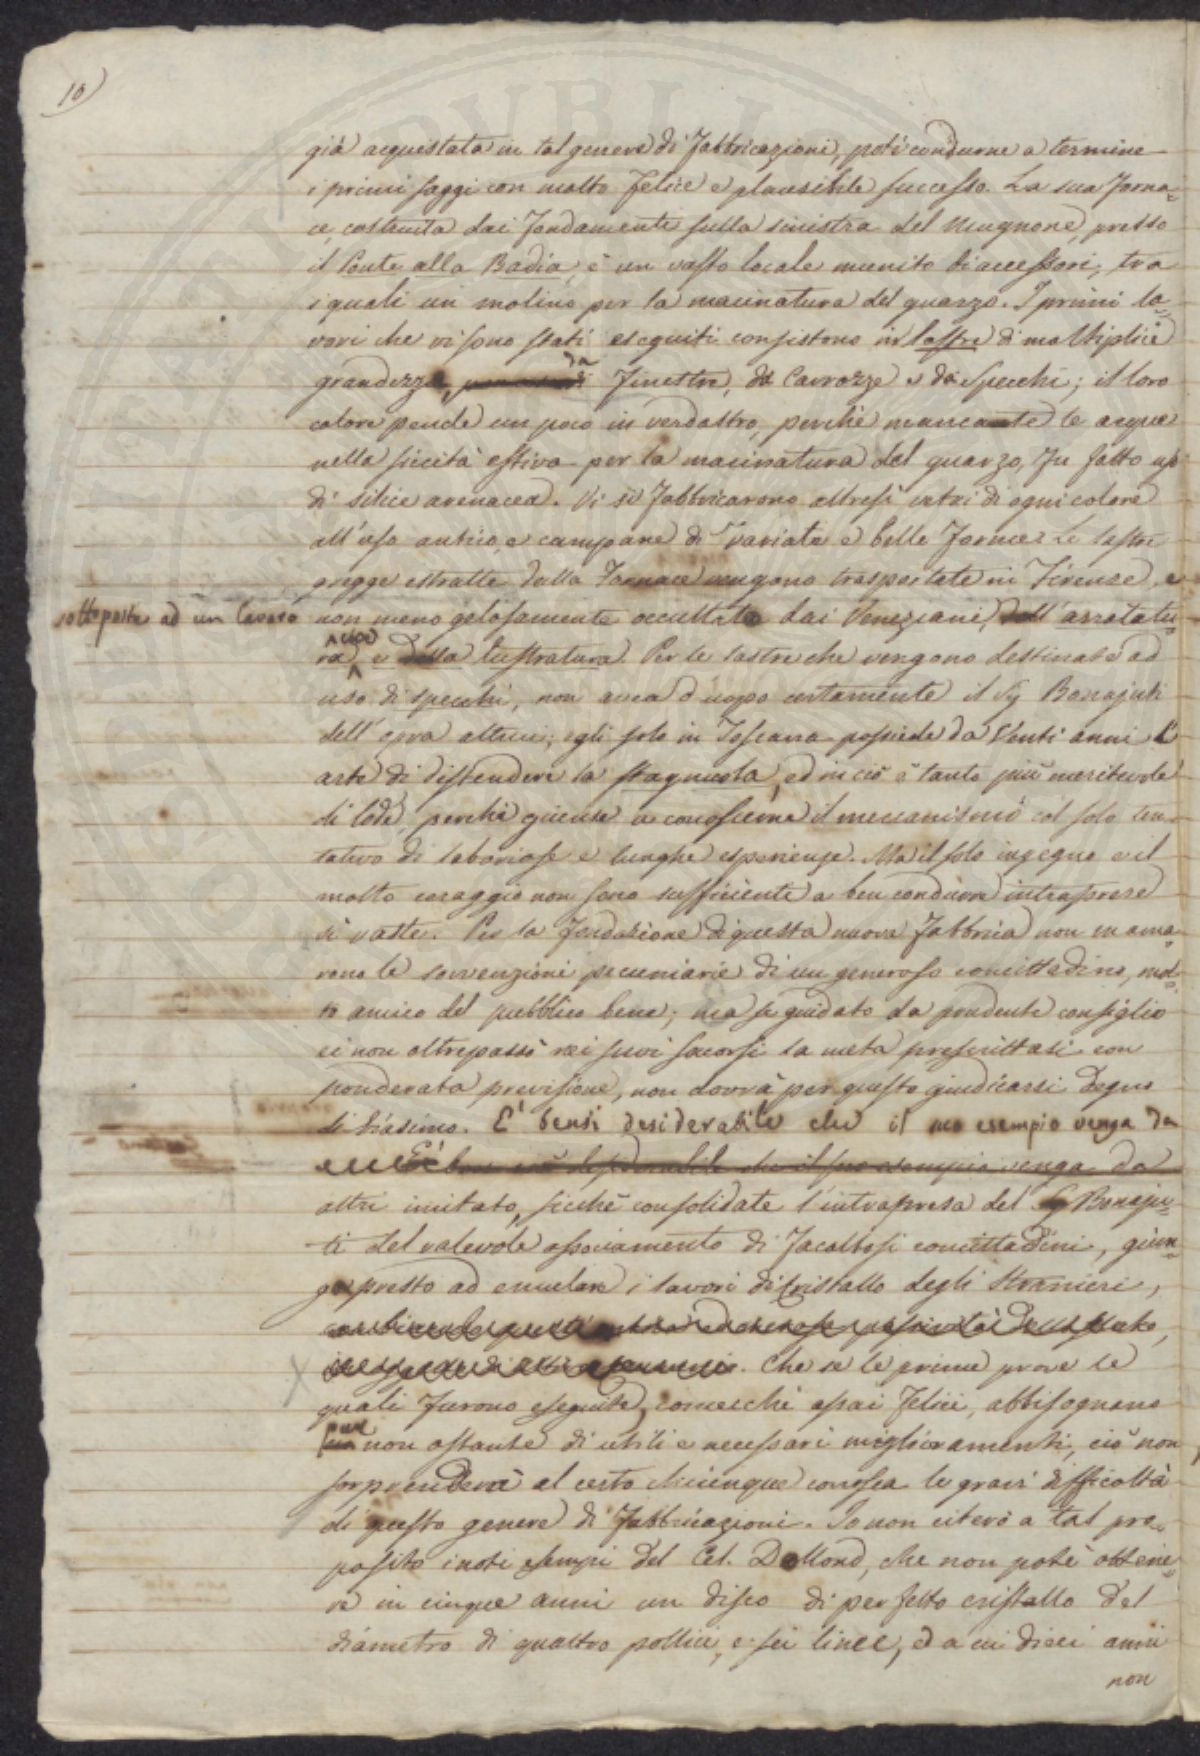 10)
già acquistata in tal genere di Fabbricazioni, poté condurne a termine
i primi saggi con molto felice e plausibile successo. La sua Forna=
ce, costruita dai Fondamenti sulla sinistra del Mugnone, presso
il Ponte alla Badia, è un vasto locale munito di accessori, tra
i quali un molino per la macinatura del quarzo. I primi la=
vori che vi sono stati eseguiti consistono in lastre di moltiplice
grandezza, da Finestre, da Carrozze e da Specchi; il loro
colore pende un poco in verdastro, perché mancante le acque
nella siccità estiva per la macinatura del quarzo, fu fatto uso
di silice arenacea. Vi si Fabbricarono altresì vetri di ogni colore
all'uso antico, e campane di variate e belle forme. Le lastre
gregge estratte dalla Fornace vengono trasportate in Firenze, e
sottoposte ad un lavoro non meno gelosamente occultato dai Veneziani, dall'arrotatu=
ra cioè e della lustratura. Per le lastre che vengono destinate ad
uso di specchi, non avea d'uopo certamente il Sig Bonajuti
dell'opra altrui; egli solo in Toscana possiede da Venti anni l'
arte di distendere la stagnuola, ed in ciò è tanto più meritevole
di lode, perché giunse a conoscerne il meccanismo col solo ten=
tativo di laboriose e lunghe esperienze. Ma il solo ingegno e il
molto coraggio non sono sufficiente a ben condurre intraprese
sì vaste. Per la fondazione di questa nuova Fabbrica non manca=
rono le sovvenzioni pecuniarie di un generoso concittadino, mol=
to amico del pubblico bene; ma se guidato da prudente consiglio
ei non oltrepassò nei suoi soccorsi la meta prescrittasi con
ponderata previsione, non dovrà per questo giudicarsi degno
di biasimo. E' bensì desiderabile che il suo esempio venga da
desiderabile che il suo esempio venga da
altri imitato, sicché consolidate l'intrapresa del Sig Bonaju=
ti del valevole associamento di Facoltosi concittadini, giun=
ga presto ad emulare i lavori di Cristallo degli Stranieri,
Che se le prime prove le
quali furono eseguite, comecché assai felici, abbisognano
pur non ostante di utili e necessari miglioramenti, ciò non
sorprenderà al certo chiunque conosca le gravi difficoltà
di questo genere di Fabbricazioni. Io non citerò a tal pro=
posito i noti esempi del Cel. Dollond, che non poté ottene=
re in cinque anni un disco di perfetto cristallo del
diametro di quattro pollici, e sei linee, ed a cui dieci anni
non